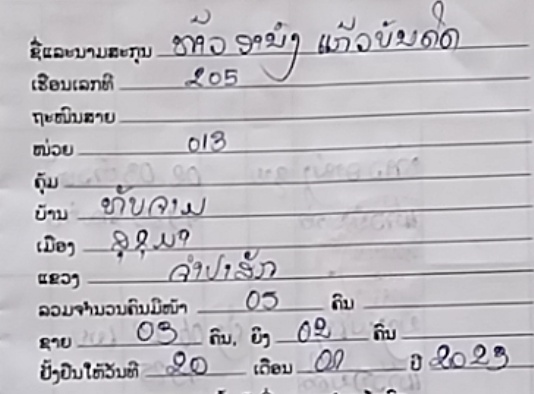 ຊື່ແລະນາມສະກຸນ ທ້າວ ອານົງ ແກ້ວບັນດິດ
ເຮືອນເລກທີ 205
ຖະໜົນສາຍ
ໜ່ວຍ 013
ຄຸ້ມ
ບ້ານ ຫົບຈານ
ເມືອງ ສຸຂຸມາ
ແຂວງ ຈຳປາສັກ
ລວມຈຳນວນຄົນມີໜ້າ 05 ຄົນ
ຊາຍ 03 ຄົນ, ຍິງ 02 ຄົນ
ຢັ້ງຢືນໃຫ້ວັນທີ 20 ເດືອນ 01 ປີ 2023